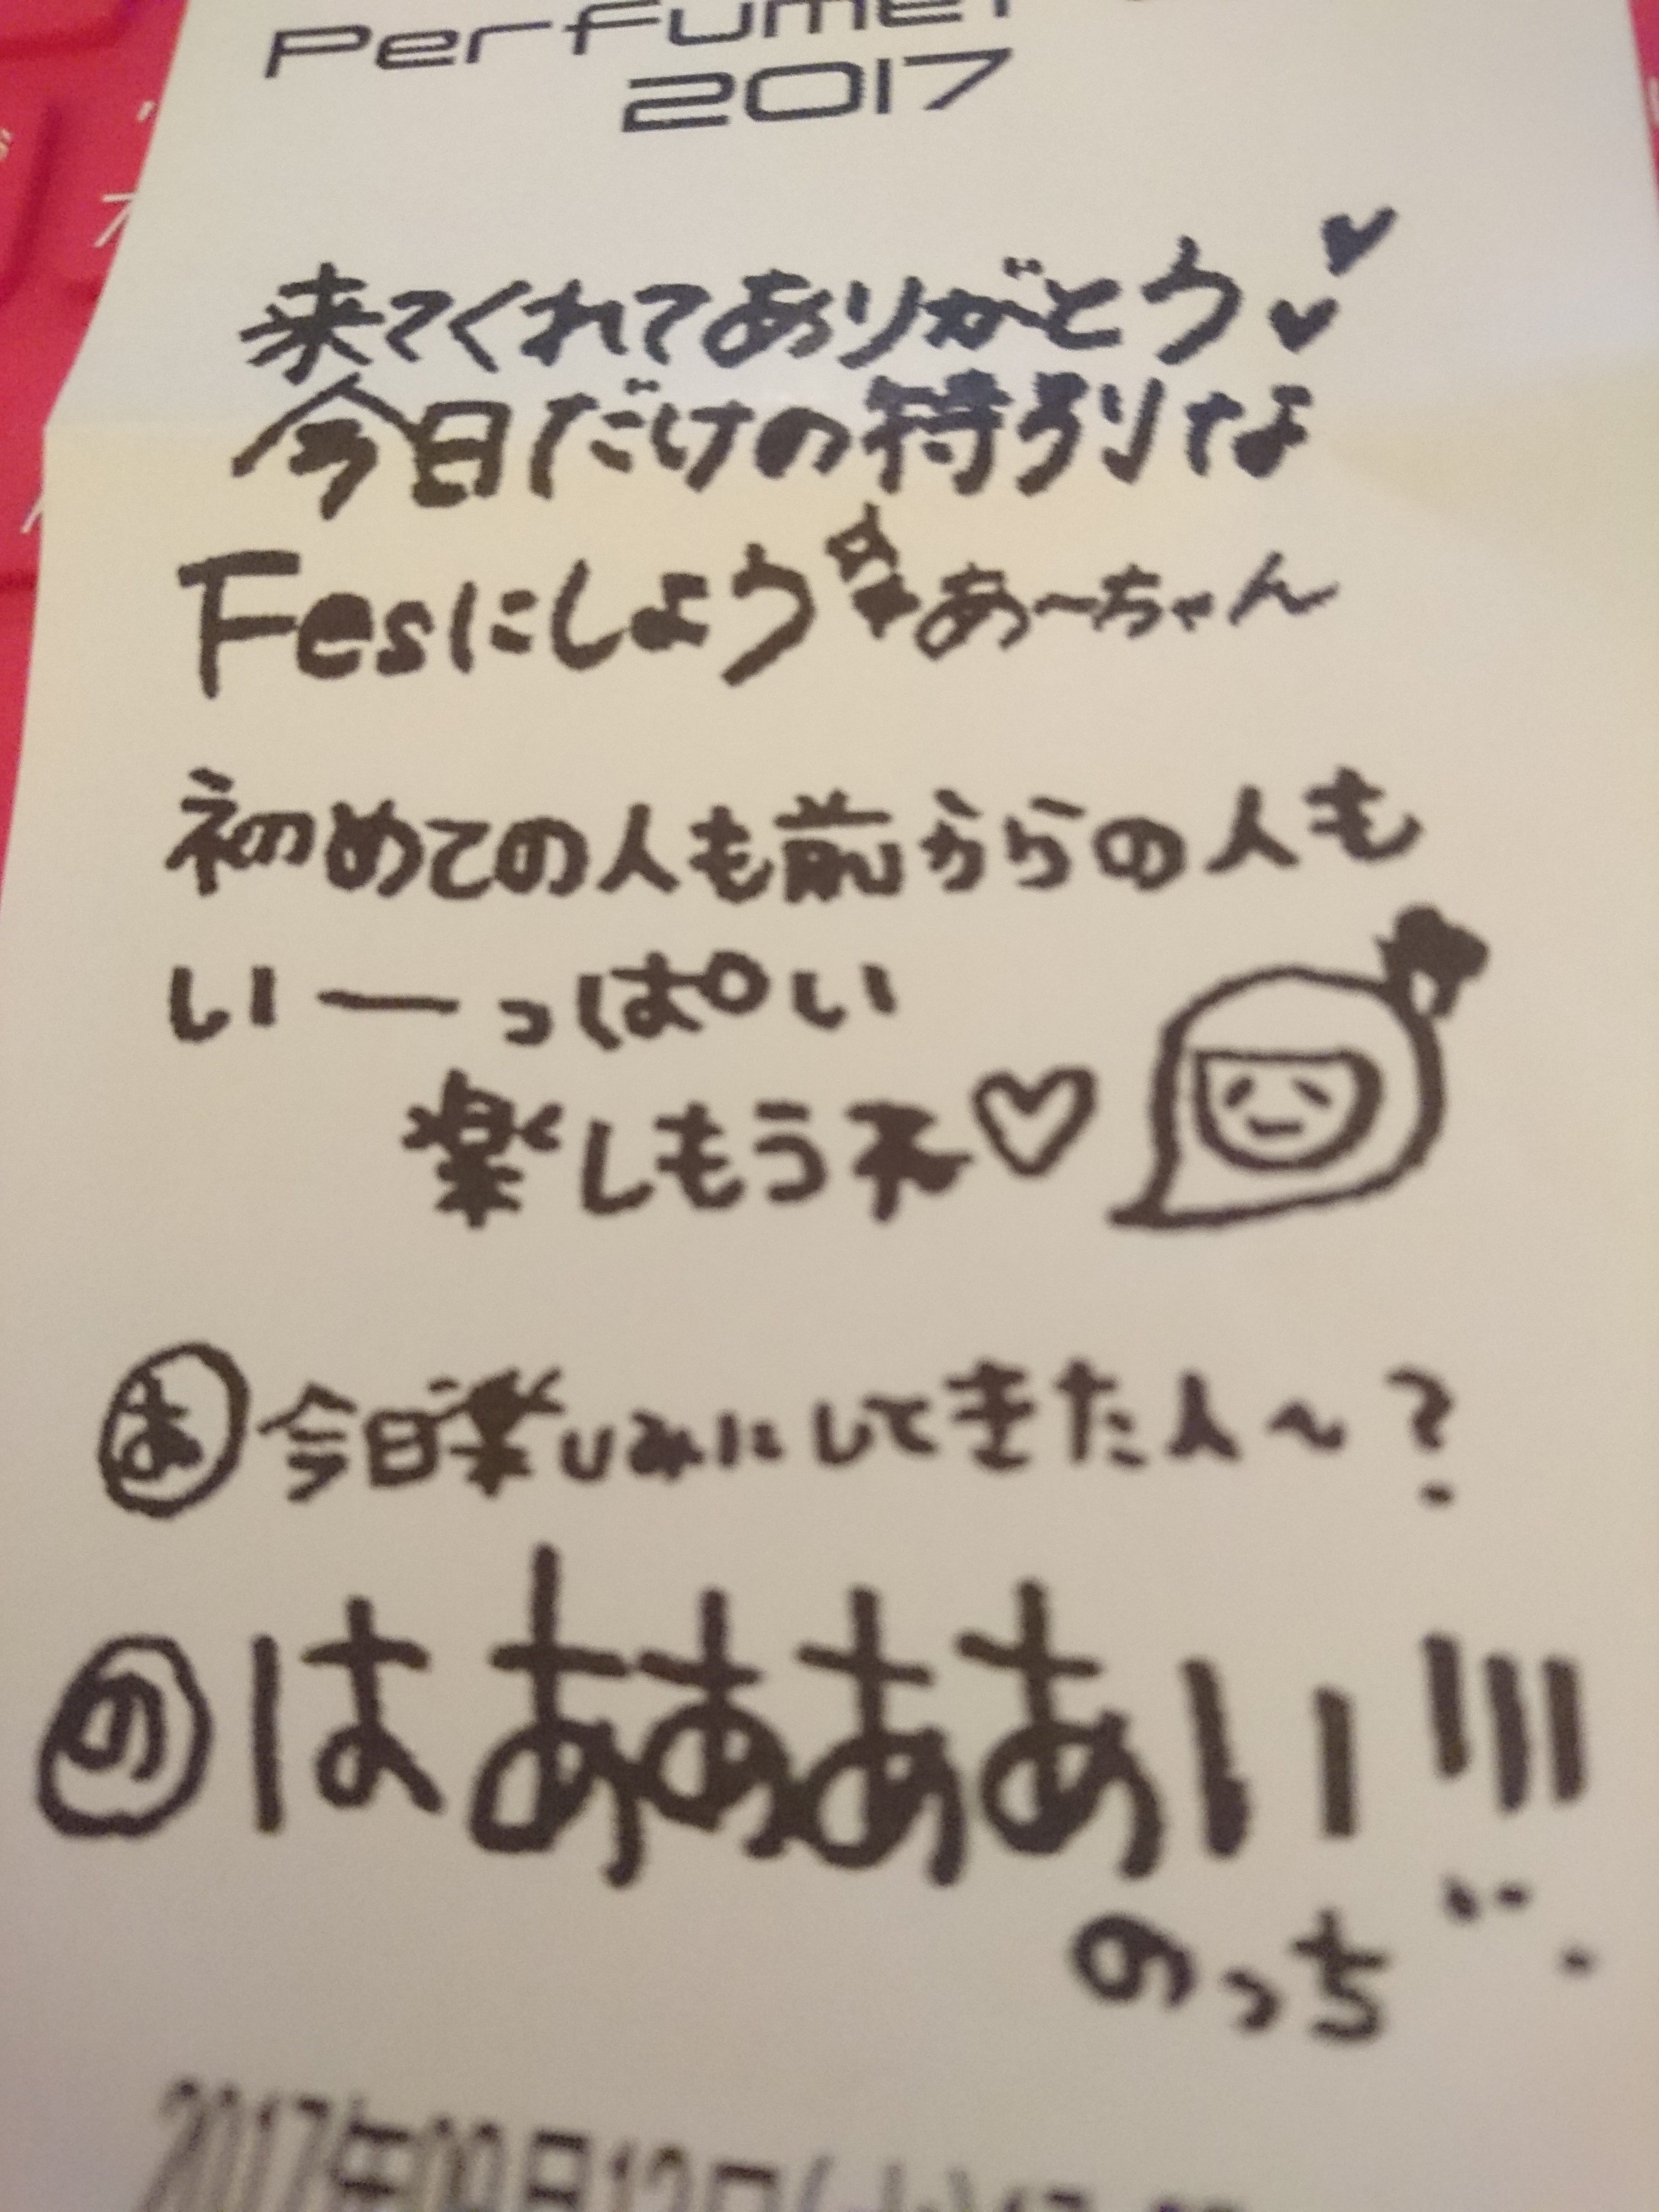 Perfume
2017
来てくれてありがとう
今日だけの特別な
Fesにしよう あ～ちゃん
初めての人も前からの人も
いーっぱい
楽しもうネ♡
あ 今日楽しみにしてきた人～?
の はああああいい!!!
のっち
2017年09月12日(火)